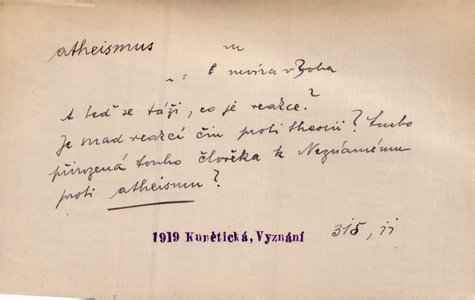 atheismus
nevíra v Boha
A teď se táži, co je reakce?
Je snad reakcí čin proti theorii? Touho
přirozená touho člověka k Neznámému
proti atheismu?
1919 Kunětická, Vyznání
315, ii